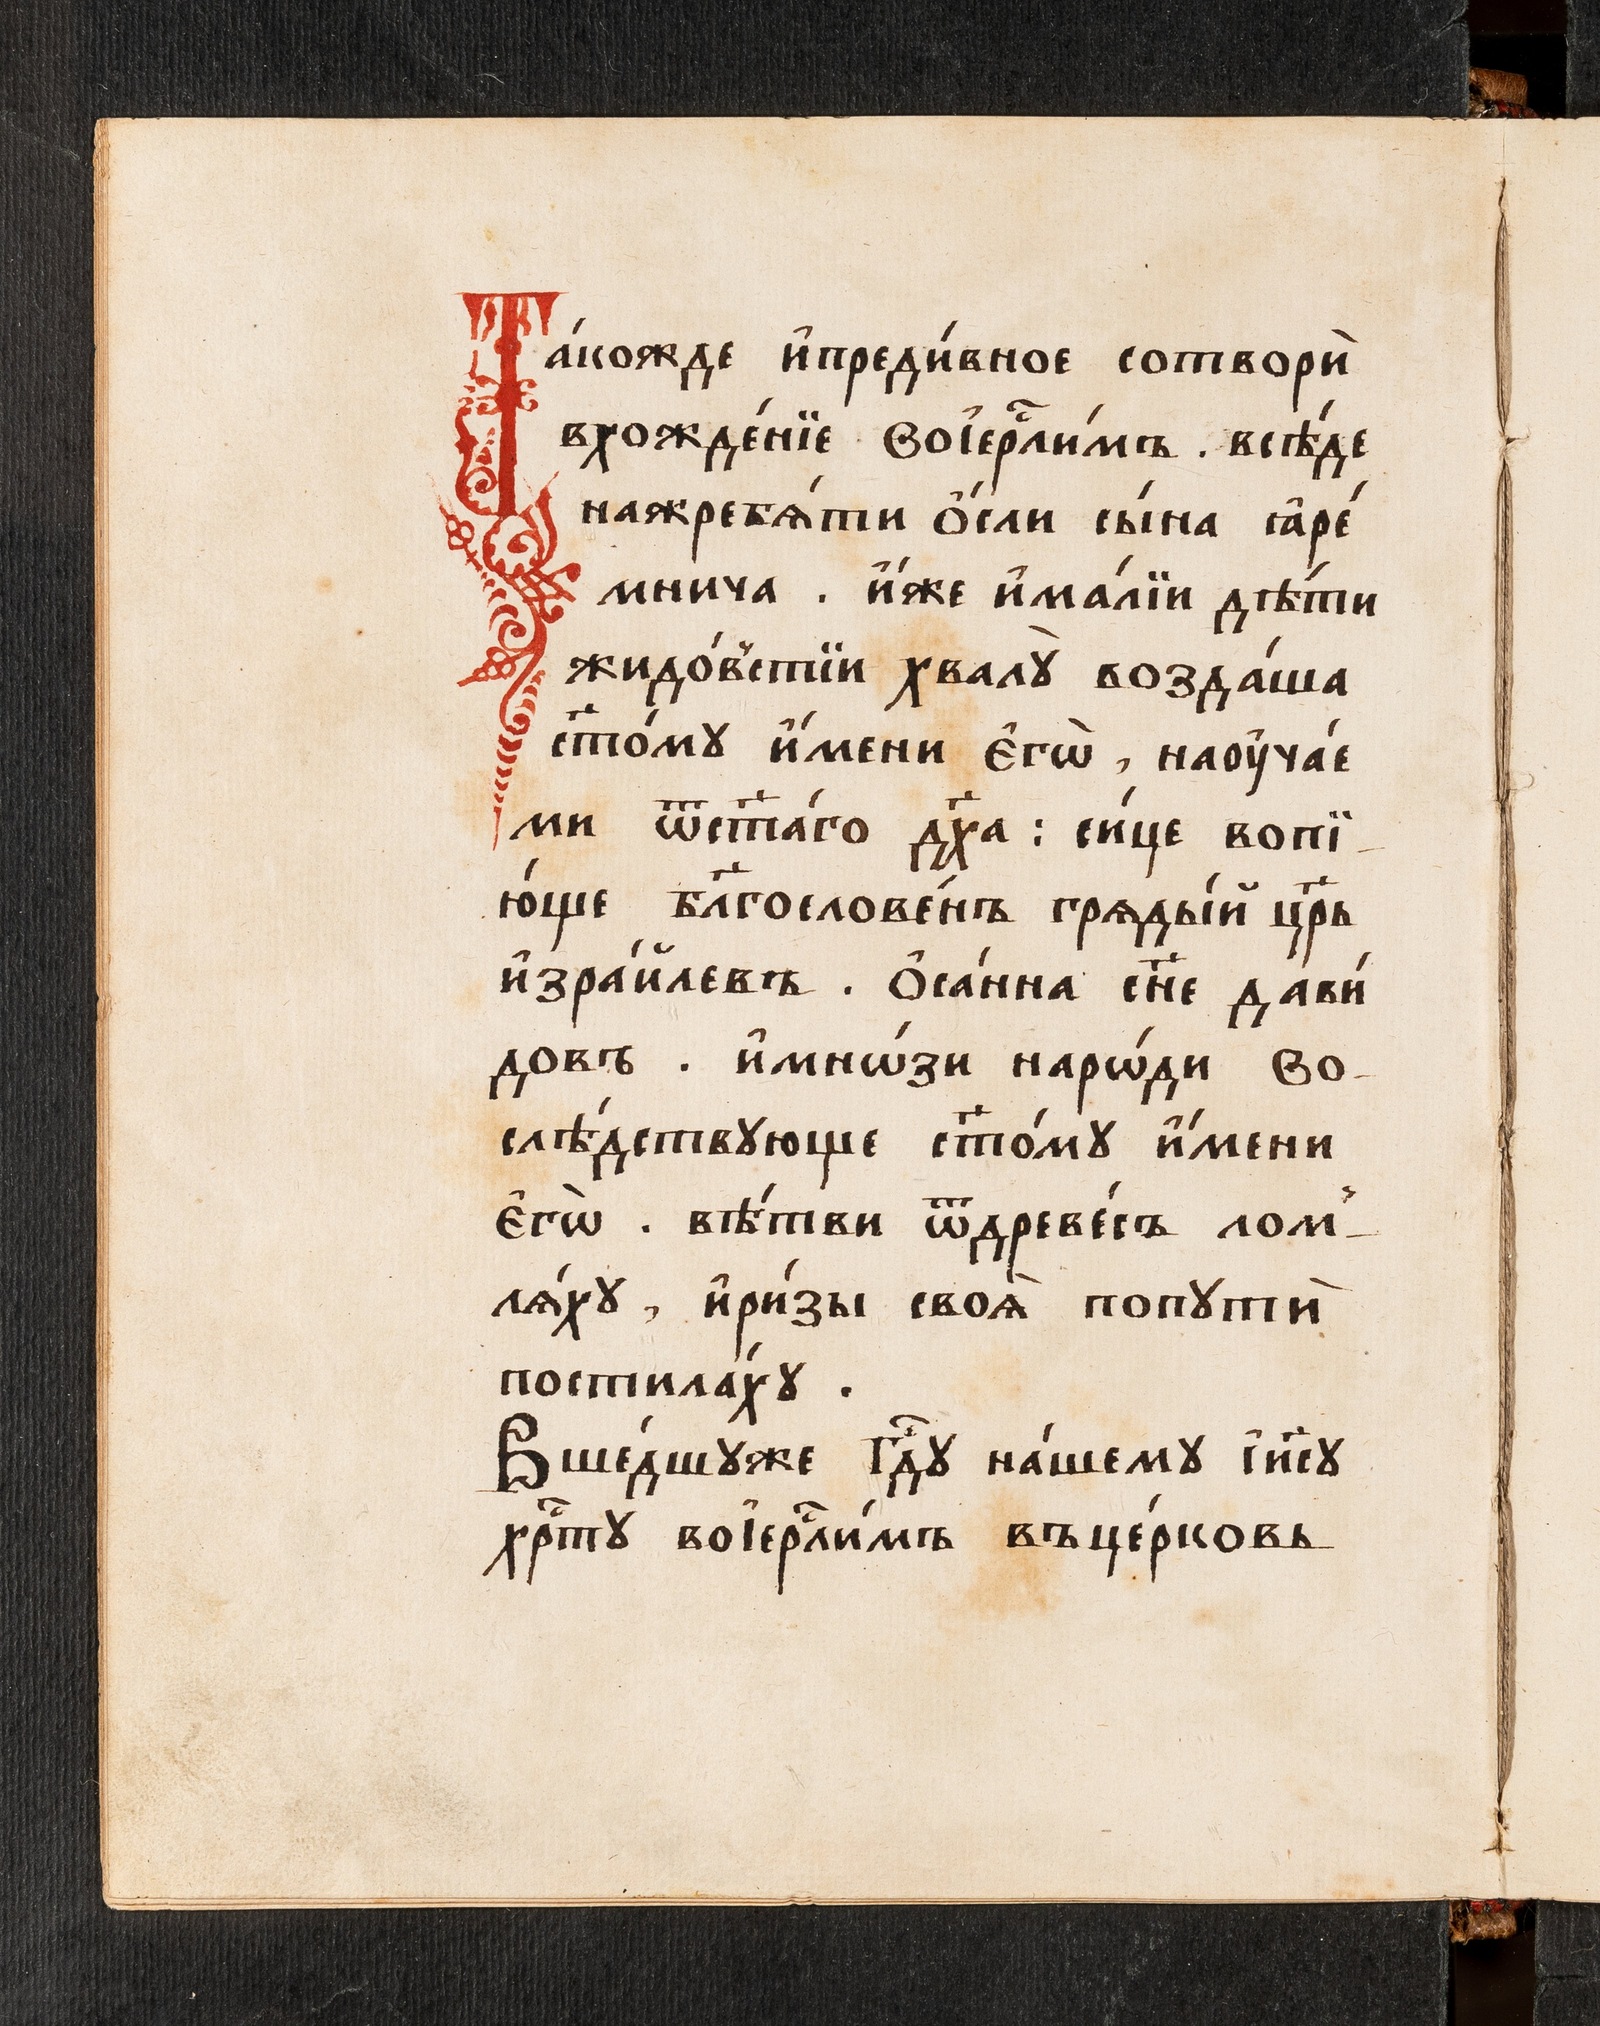 Та́кожде и҆преди́вное сотворѝ
вхожде́нїе воі҆ерⷭ҇ли́мъ . всѣ́де
нажребѧ́ти ѻ҆́сли сы́на ꙗ҆ре́
мнича . и҆́же и҆ма́лїи дѣ́ти
жидо́вⸯстїи хвалꙋ̀ возда́ша
ст҃о́мꙋ и҆́мени є҆гѡ̀ , наоу҆ча́е
ми ѿст҃а́го дх҃а : си́це вопї_
ю́ще бл҃гослове́нъ грѧды́й цр҃ь
и҆зра́йлевъ . Ѻ҆са́нна сн҃е дави́
довъ . и҆мнѡ́зи нарѡ́ди во_
слѣ́дствꙋюще ст҃о́мꙋ и҆́мени
є҆гѡ̀ . вѣ́тви ѿдреве́съ ломⸯ_
лѧ́хꙋ , и҆ри́зы своѧ̀ попꙋтѝ
постила́хꙋ .
Вше́дшꙋже Гдⷭ҇ꙋ на́шемꙋ і҆и҃сꙋ
хрⷭ҇тꙋ воі҆ерⷭ҇ли́мъ въце́рковь